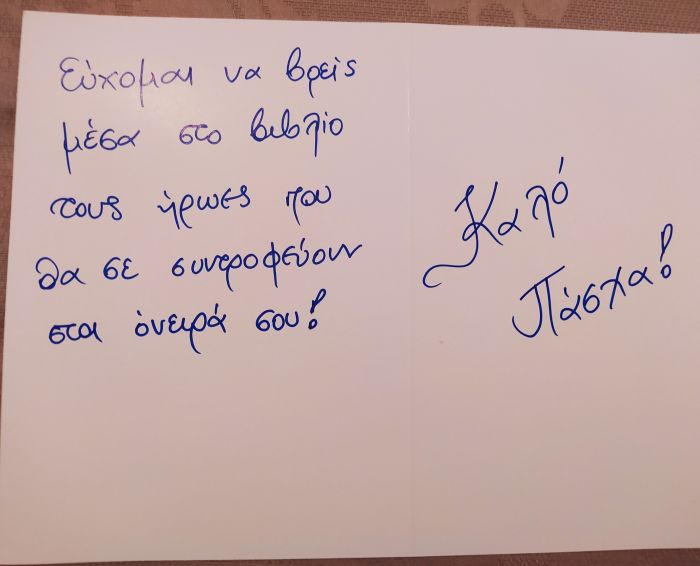 Εύχομαι να βρείς
μέσα στο βιβλίο
τους ήρωες που
θα σε συντροφεύουν
στα όνειρά σου!
Καλό
Πάσχα!